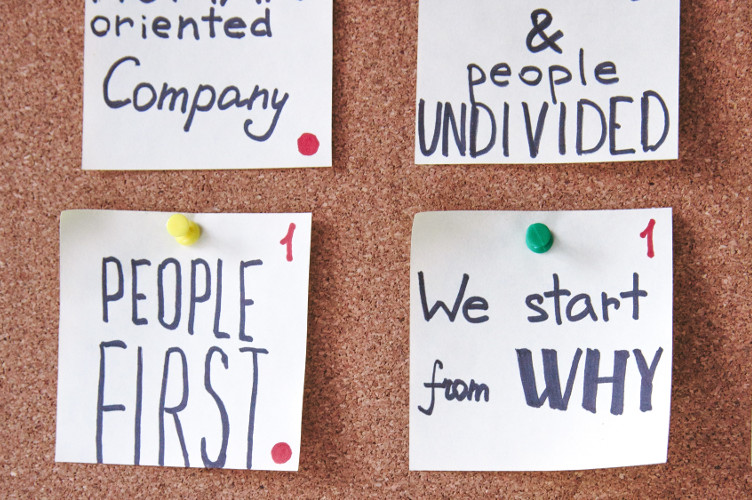 oriented
Company
&
people
UNDIVIDED
1
PEOPLE
FIRST
1
We start
from WHY